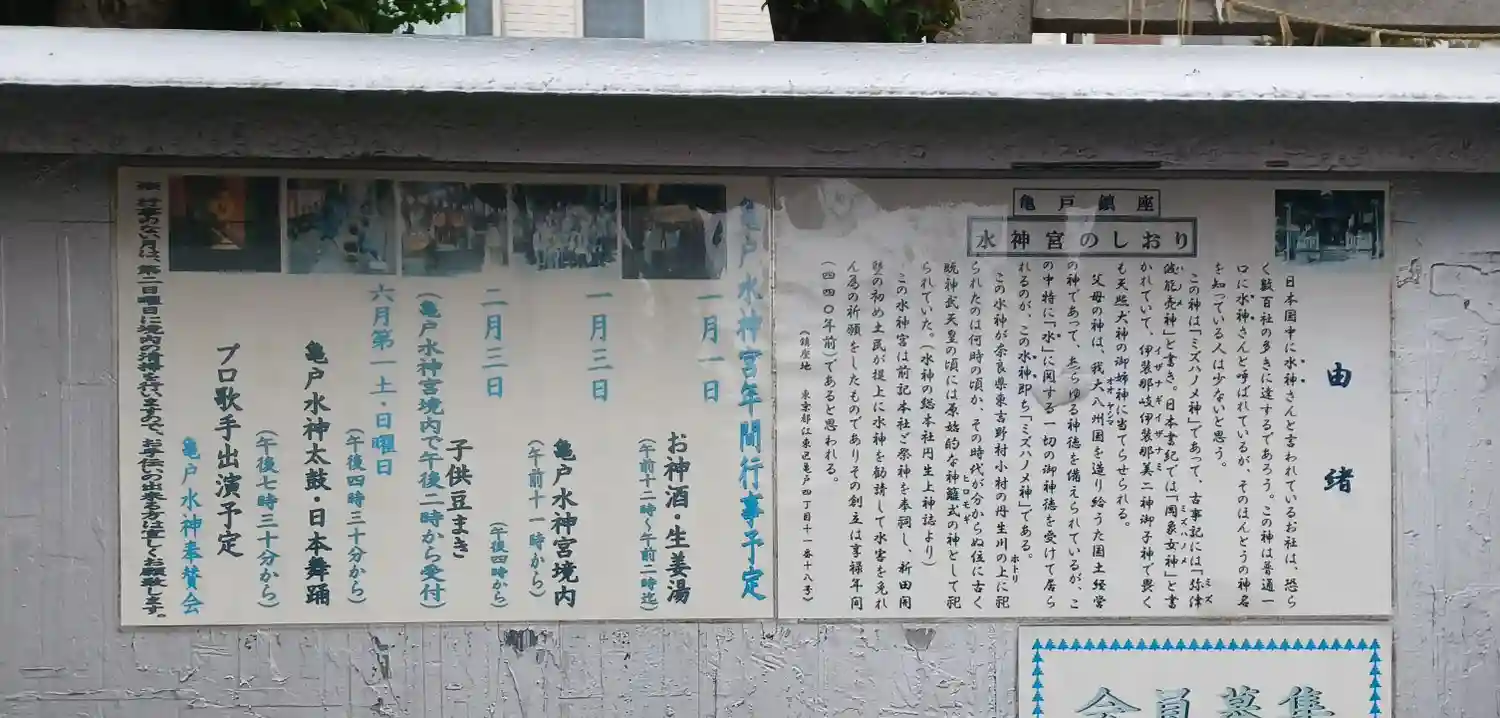 亀戸鎮座
水神宮のしおり
由緒
日本国中に水神さんと言われているお社は、恐ら
く数百社の多きに達するであろう。この神は普通一
口に水神さんと呼ばれているが、そのほんとうの神名
を知っている人は少ないと思う。
この神は「ミズハノメ神」であって、古事記には「弥津
ミズ
波能売神」と書き。日本書紀では「罔象女神」と書
ハノメ
ミズハノメ
かれていて、伊装那岐伊装那美二神御子神で畏く
イザナギイザナミ
も天照大神の御姉神に当てらせられる。
父母の神は、我大八州国を造り給うた国土経営
オオヤシマ
の神であって、あらゆる神徳を備えられているが、こ
の中特に「水」に関する一切の御神徳を受けて居ら
れるのが、この水神即ち「ミズハノメ神」である。
この水神が奈良県東吉野村小村の丹生川の上に祀
ホトリ
られたのは何時の頃か、その時代が分からぬ位に古く
既神武天皇の頃には原始的な神籬式の神として祀
ヒロモギ
られていた。(水神の総本社丹生上神誌より)
この水神宮は前記本社ご祭神を奉祠し、新田開
墾の初め土民が提上に水神を勧請して水害を免れ
ん為の祈願をしたものでありその創立は享禄年間
(四四〇年前)であると思われる。
(鎮座地 東京都江東区亀戸四丁目十一番十八号)
亀戸水神宮年間行事予定
一月一日
お神酒・生姜湯
(午前十二時~午前二時迄)
一月三日
亀戸水神宮境内
(午前十一時から)
二月三日
(午後四時から)
子供豆まき
(亀戸水神宮境内で午後二時から受付)
六月第一土・日曜日
(午後四時三十分から)
亀戸水神太鼓・日本舞踊
(午後七時三十分から)
プロ歌手出演予定
亀戸水神奉賛会
※行事のない月は、第二日曜日に境内の清掃を行いますので、お手伝いの出来る方は宜しくお願い致します。
会員募集